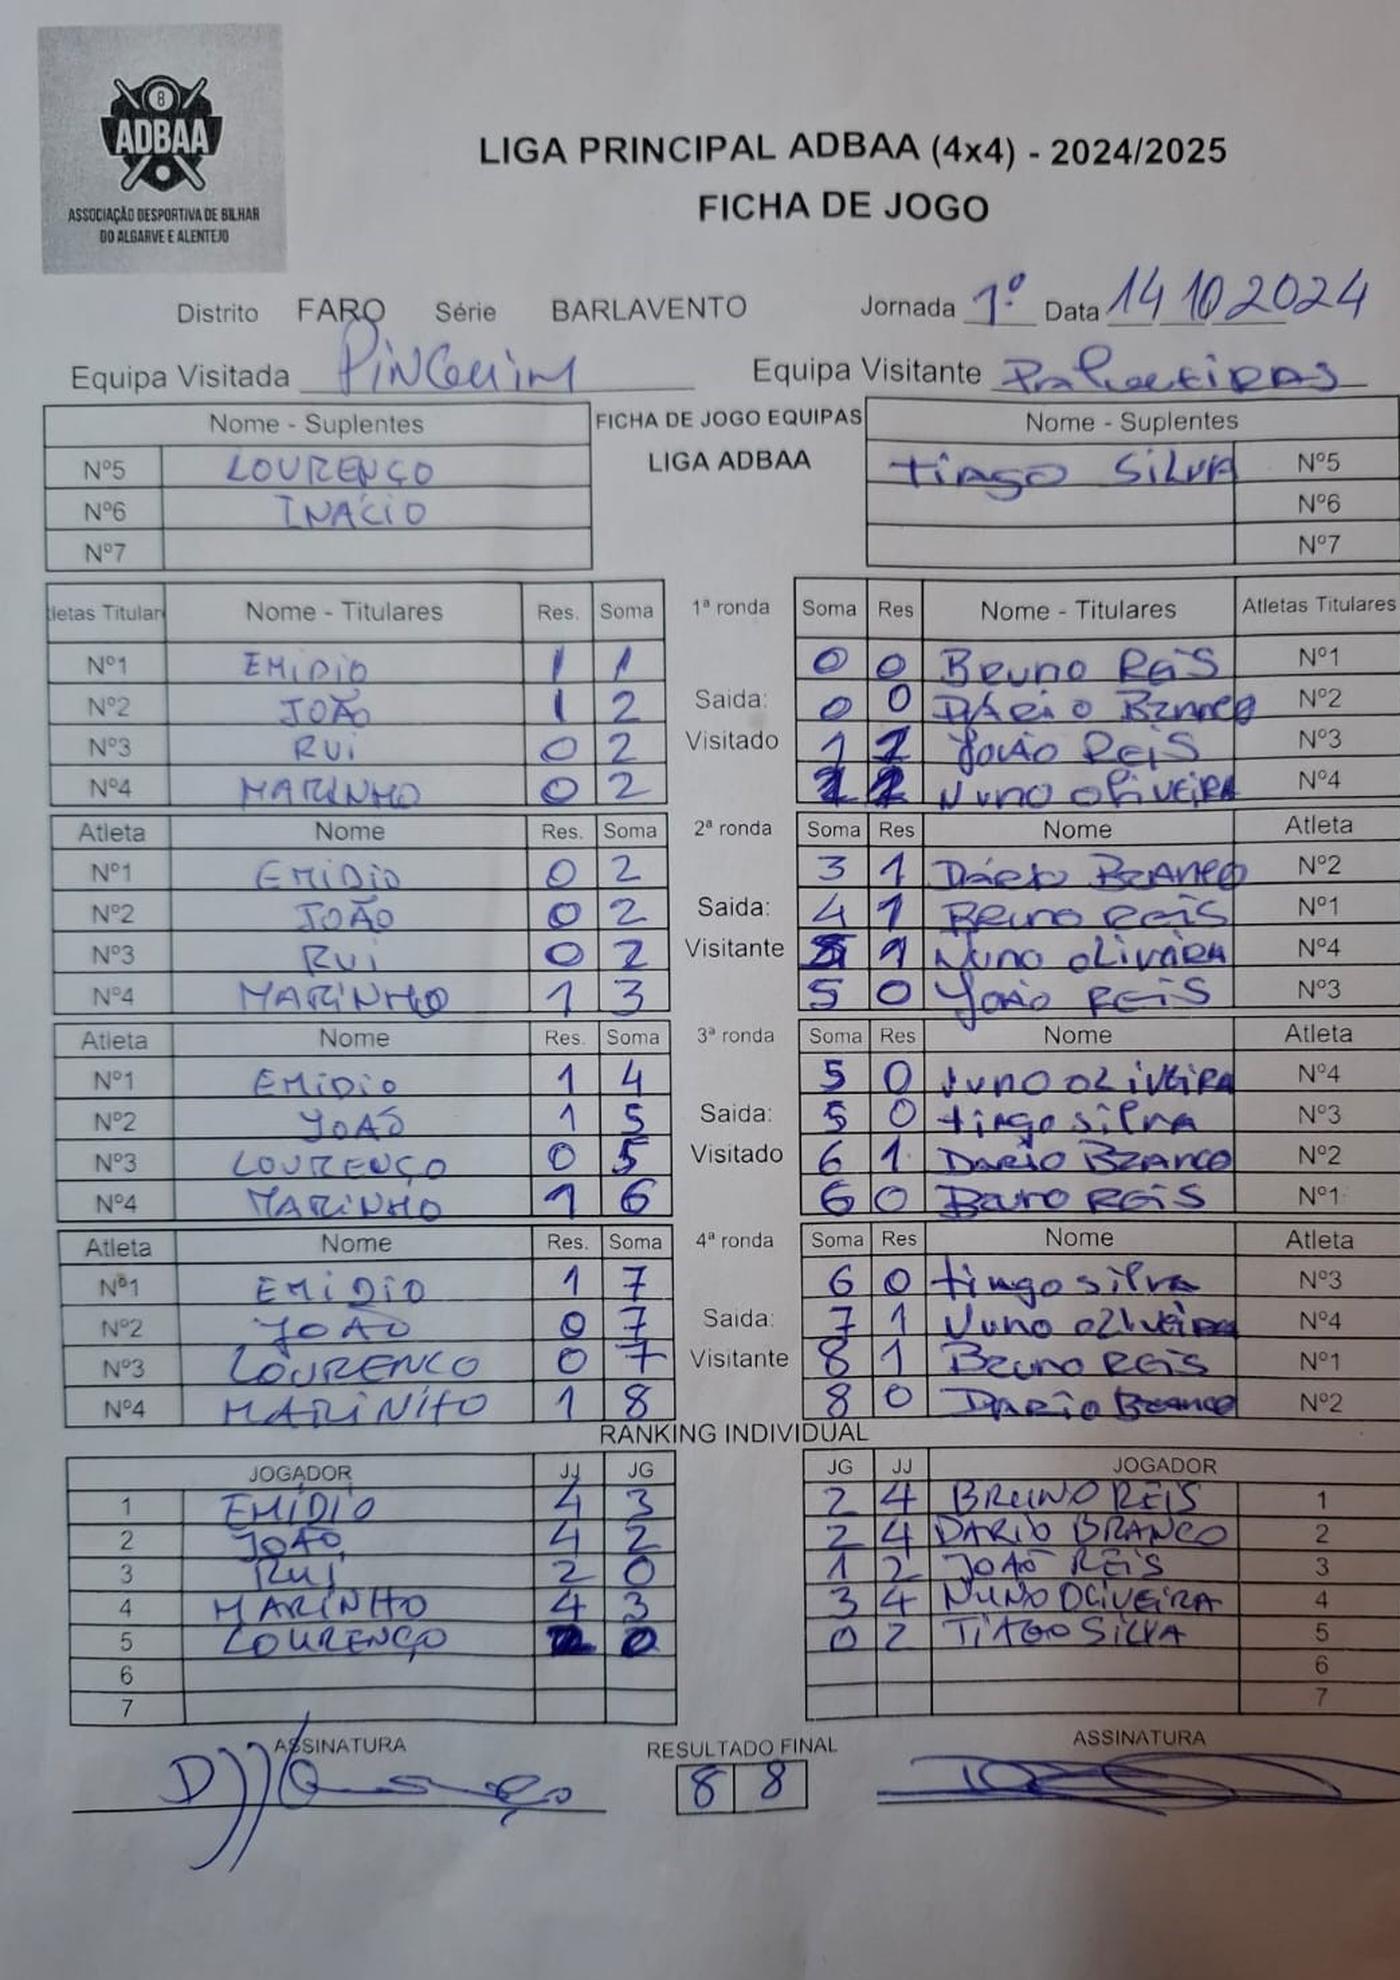 8
ADBAA
ASSOCIAÇÃO DESPORTIVA DE BILHAR
DO ALGARVE E ALENTEJO
LIGA PRINCIPAL ADBAA (4x4) - 2024/2025
FICHA DE JOGO
Distrito FARO Série BARLAVENTO Jornada 1º Data 14 10 2024
Equipa Visitada Equipa Visitante
Nome - Suplentes FICHA DE JOGO EQUIPAS Nome - Suplentes
Nº5 LOURENÇO LIGA ADBAA tiago Silva Nº5
Nº6 INÁCIO Nº6
Nº7 Nº7
letas Titular Nome - Titulares Res. Soma 1ª ronda Soma Res Nome - Titulares Atletas Titulares
Nº1 EMIDIO 1 1 0 0 Bruno Reis Nº1
Nº2 JOÃO 1 2 Saida: 0 0 DÁRIO Branco Nº2
Nº3 RUI 0 2 Visitado 1 1 João Reis Nº3
Nº4 MARINHO 0 2 Nuno oliveira Nº4
Atleta Nome Res. Soma 2ª ronda Soma Res Nome Atleta
Nº1 EMIDIO 0 2 3 1 Dário Branco Nº2
Nº2 JOÃO 0 2 Saida: 4 1 Bruno Reis Nº1
Nº3 RUI 0 2 Visitante 5 1 Nuno oliveira Nº4
Nº4 MARINHO 1 3 5 0 João Reis Nº3
Atleta Nome Res. Soma 3ª ronda Soma Res Nome Atleta
Nº1 EMIDIO 1 4 5 0 Nuno oliveira Nº4
Nº2 JOÃO 1 5 Saida: 5 0 tiago silva Nº3
Nº3 LOURENÇO 0 5 Visitado 6 1 Dario Branco Nº2
Nº4 MARINHO 1 6 6 0 Bruno Reis Nº1
Atleta Nome Res. Soma 4ª ronda Soma Res Nome Atleta
Nº1 EMIDIO 1 7 6 0 tiago silva Nº3
Nº2 JOÃO 0 7 Saida: 7 1 Nuno oliveira Nº4
Nº3 LOURENCO 0 7 Visitante 8 1 Bruno Reis Nº1
Nº4 MARINHO 1 8 8 0 Dário Branco Nº2
RANKING INDIVIDUAL
JOGADOR JJ JG JG JJ JOGADOR
1 EMÍDIO 4 3 2 4 BRUNO REIS 1
2 JOÃO 4 2 2 4 DARIO BRANCO 2
3 RUI 2 0 1 2 JOÃO REIS 3
4 MARINHO 4 3 3 4 NUNO OLIVEIRA 4
5 LOURENÇO 2 0 0 2 TIAGO SILVA 5
6 6
7 7
ASSINATURA RESULTADO FINAL ASSINATURA
8 8